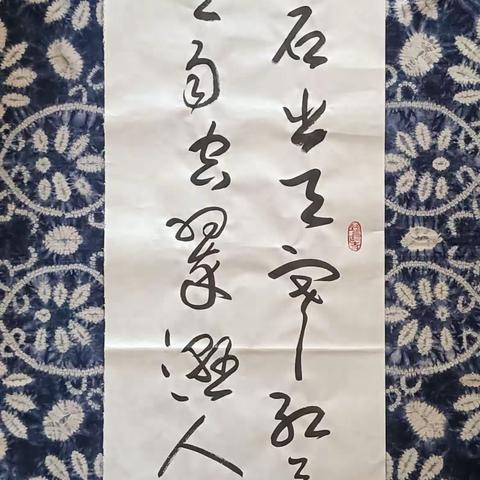 石出天寒紅
雨空翠濕人